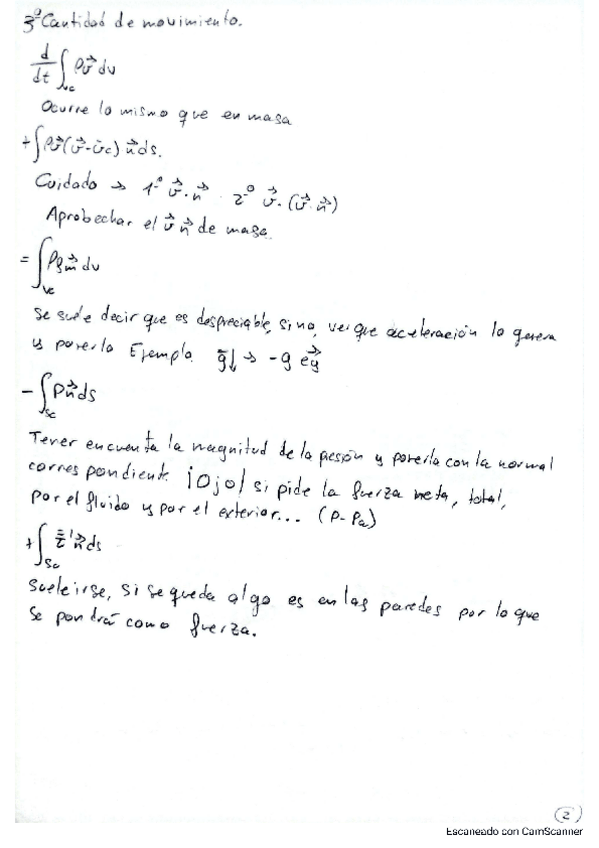 3º Cantidad de movimiento.
d/dt ∫vc ρv⃗ dv
Ocurre lo mismo que en masa
+∫ρv⃗(v⃗-v⃗c) n⃗ ds.
Cuidado → 1º v⃗·n⃗ 2º v⃗·(v⃗·n⃗)
Aprobechar el v⃗ n⃗ de masa.
=∫vc ρf⃗m dv
Se suele decir que es despreciable, sino, ver que aceleración lo genera
y ponerlo Ejemplo. g⃗↓ → -g e⃗g
-∫sc Pn⃗ ds
Tener encuenta la magnitud de la presión y ponerla con la normal
correspondiente ¡Ojo! si pide la fuerza neta, total,
por el fluido y por el exterior... (P-Pa)
+∫sc τ' n⃗ ds
Suele irse, si se queda algo es en las paredes por lo que
se pondrá como fuerza.
2
Escaneado con CamScanner